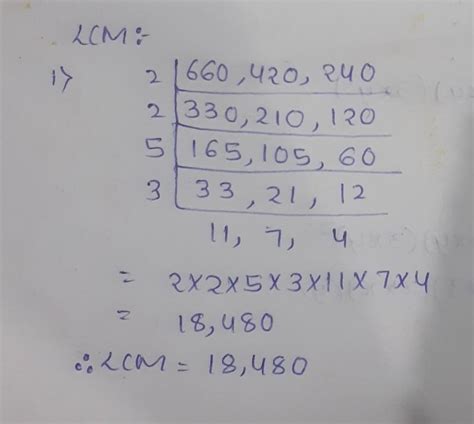 LCM:-
1) 2 | 660, 420, 240
2 | 330, 210, 120
5 | 165, 105, 60
3 | 33, 21, 12
11, 7, 4
= 2×2×5×3×11×7×4
= 18,480
∴ LCM = 18,480